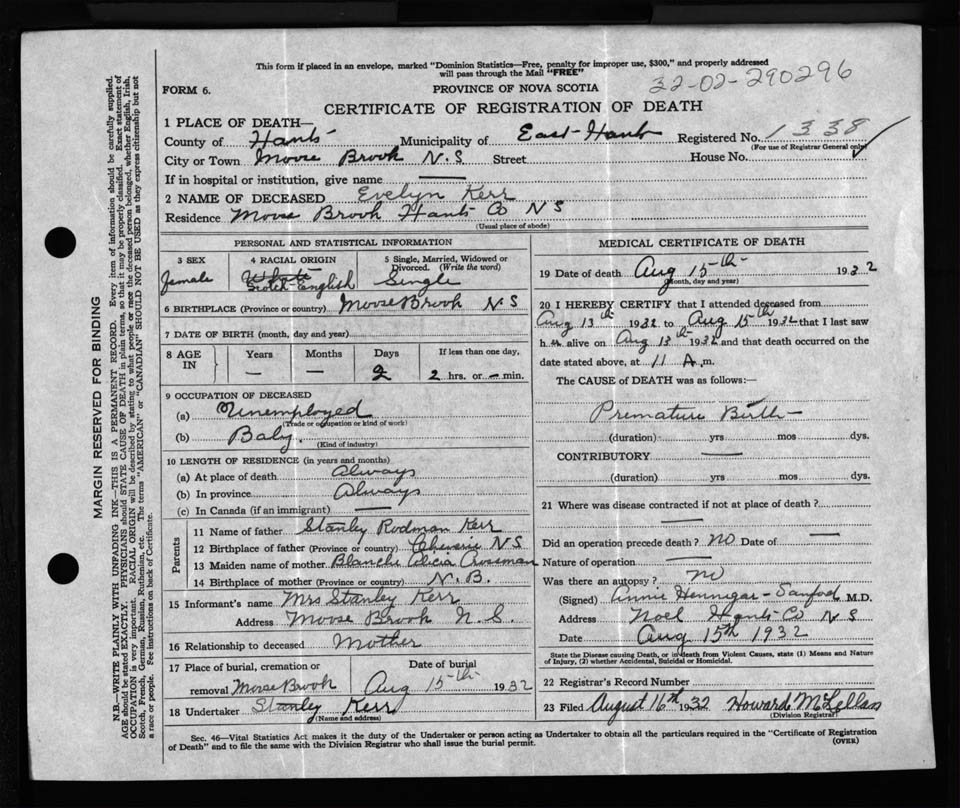 This form if placed in an envelope, marked "Dominion Statistics—Free, penalty for improper use, $300," and properly addressed
will pass through the Mail "FREE"
32-02-290296
FORM 6.
PROVINCE OF NOVA SCOTIA
CERTIFICATE OF REGISTRATION OF DEATH
1 PLACE OF DEATH—
County of Hants Municipality of East-Hants Registered No. 1338
(For use of Registrar General only)
City or Town Moose Brook N.S Street House No.
If in hospital or institution, give name —
2 NAME OF DECEASED Evelyn Kerr
Residence Moose Brook Hants Co N S
(Usual place of abode)
PERSONAL AND STATISTICAL INFORMATION
3 SEX 4 RACIAL ORIGIN 5 Single, Married, Widowed or Divorced. (Write the word)
female White Scotch-English Single
6 BIRTHPLACE (Province or country) Moose Brook N S
7 DATE OF BIRTH (month, day and year)
8 AGE IN Years Months Days If less than one day,
— — 2 2 hrs. or — min.
9 OCCUPATION OF DECEASED
(a) Unemployed
(Trade or occupation or kind of work)
(b) Baby.
(Kind of industry)
10 LENGTH OF RESIDENCE (in years and months)
(a) At place of death Always
(b) In province Always
(c) In Canada (if an immigrant) —
Parents
11 Name of father Stanley Rodman Kerr
12 Birthplace of father (Province or country) Cheverie N S
13 Maiden name of mother Blanche Alicia Crossman
14 Birthplace of mother (Province or country) N.B.
15 Informant's name Mrs Stanley Kerr
Address Moose Brook N.S.
16 Relationship to deceased Mother
17 Place of burial, cremation or Date of burial
removal Moose Brook Aug 15th 1932
18 Undertaker Stanley Kerr
(Name and address)
MEDICAL CERTIFICATE OF DEATH
19 Date of death Aug 15th 1932
(Month, day and year)
20 I HEREBY CERTIFY that I attended deceased from
Aug 13th 1932 to Aug 15th 1932 that I last saw
h alive on Aug 13th 1932 and that death occurred on the
date stated above, at 11 A.m.
The CAUSE OF DEATH was as follows:—
Premature Birth
(duration) yrs mos dys.
CONTRIBUTORY —
(duration) yrs mos dys.
21 Where was disease contracted if not at place of death?
—
Did an operation precede death? NO Date of —
Nature of operation —
Was there an autopsy? no
(Signed) Annie Hennigar-Sanford M.D.
Address Noel Hants Co N S
Date Aug 15th 1932
State the Disease causing Death, or in death from Violent Causes, state (1) Means and Nature
of Injury, (2) whether Accidental, Suicidal or Homicidal.
22 Registrar's Record Number
23 Filed August 16th 1932 Howard McLellan
(Division Registrar)
Sec. 46—Vital Statistics Act makes it the duty of the Undertaker or person acting as Undertaker to obtain all the particulars required in the "Certificate of Registration
of Death" and to file the same with the Division Registrar who shall issue the burial permit.
(OVER)
MARGIN RESERVED FOR BINDING
N.B.—WRITE PLAINLY WITH UNFADING INK—THIS IS A PERMANENT RECORD. Every item of information should be carefully supplied.
AGE should be stated EXACTLY. PHYSICIANS should STATE CAUSE OF DEATH in plain terms, so that it may be properly classified. Exact statement of
OCCUPATION is very important. RACIAL ORIGIN will be described by stating to what people or race the deceased person belonged, whether English, Irish,
Scotch, French, German, Russian, Ruthenian, etc. The terms "AMERICAN" or "CANADIAN" SHOULD NOT BE USED as they express citizenship but not
a race or people. See instructions on back of Certificate.